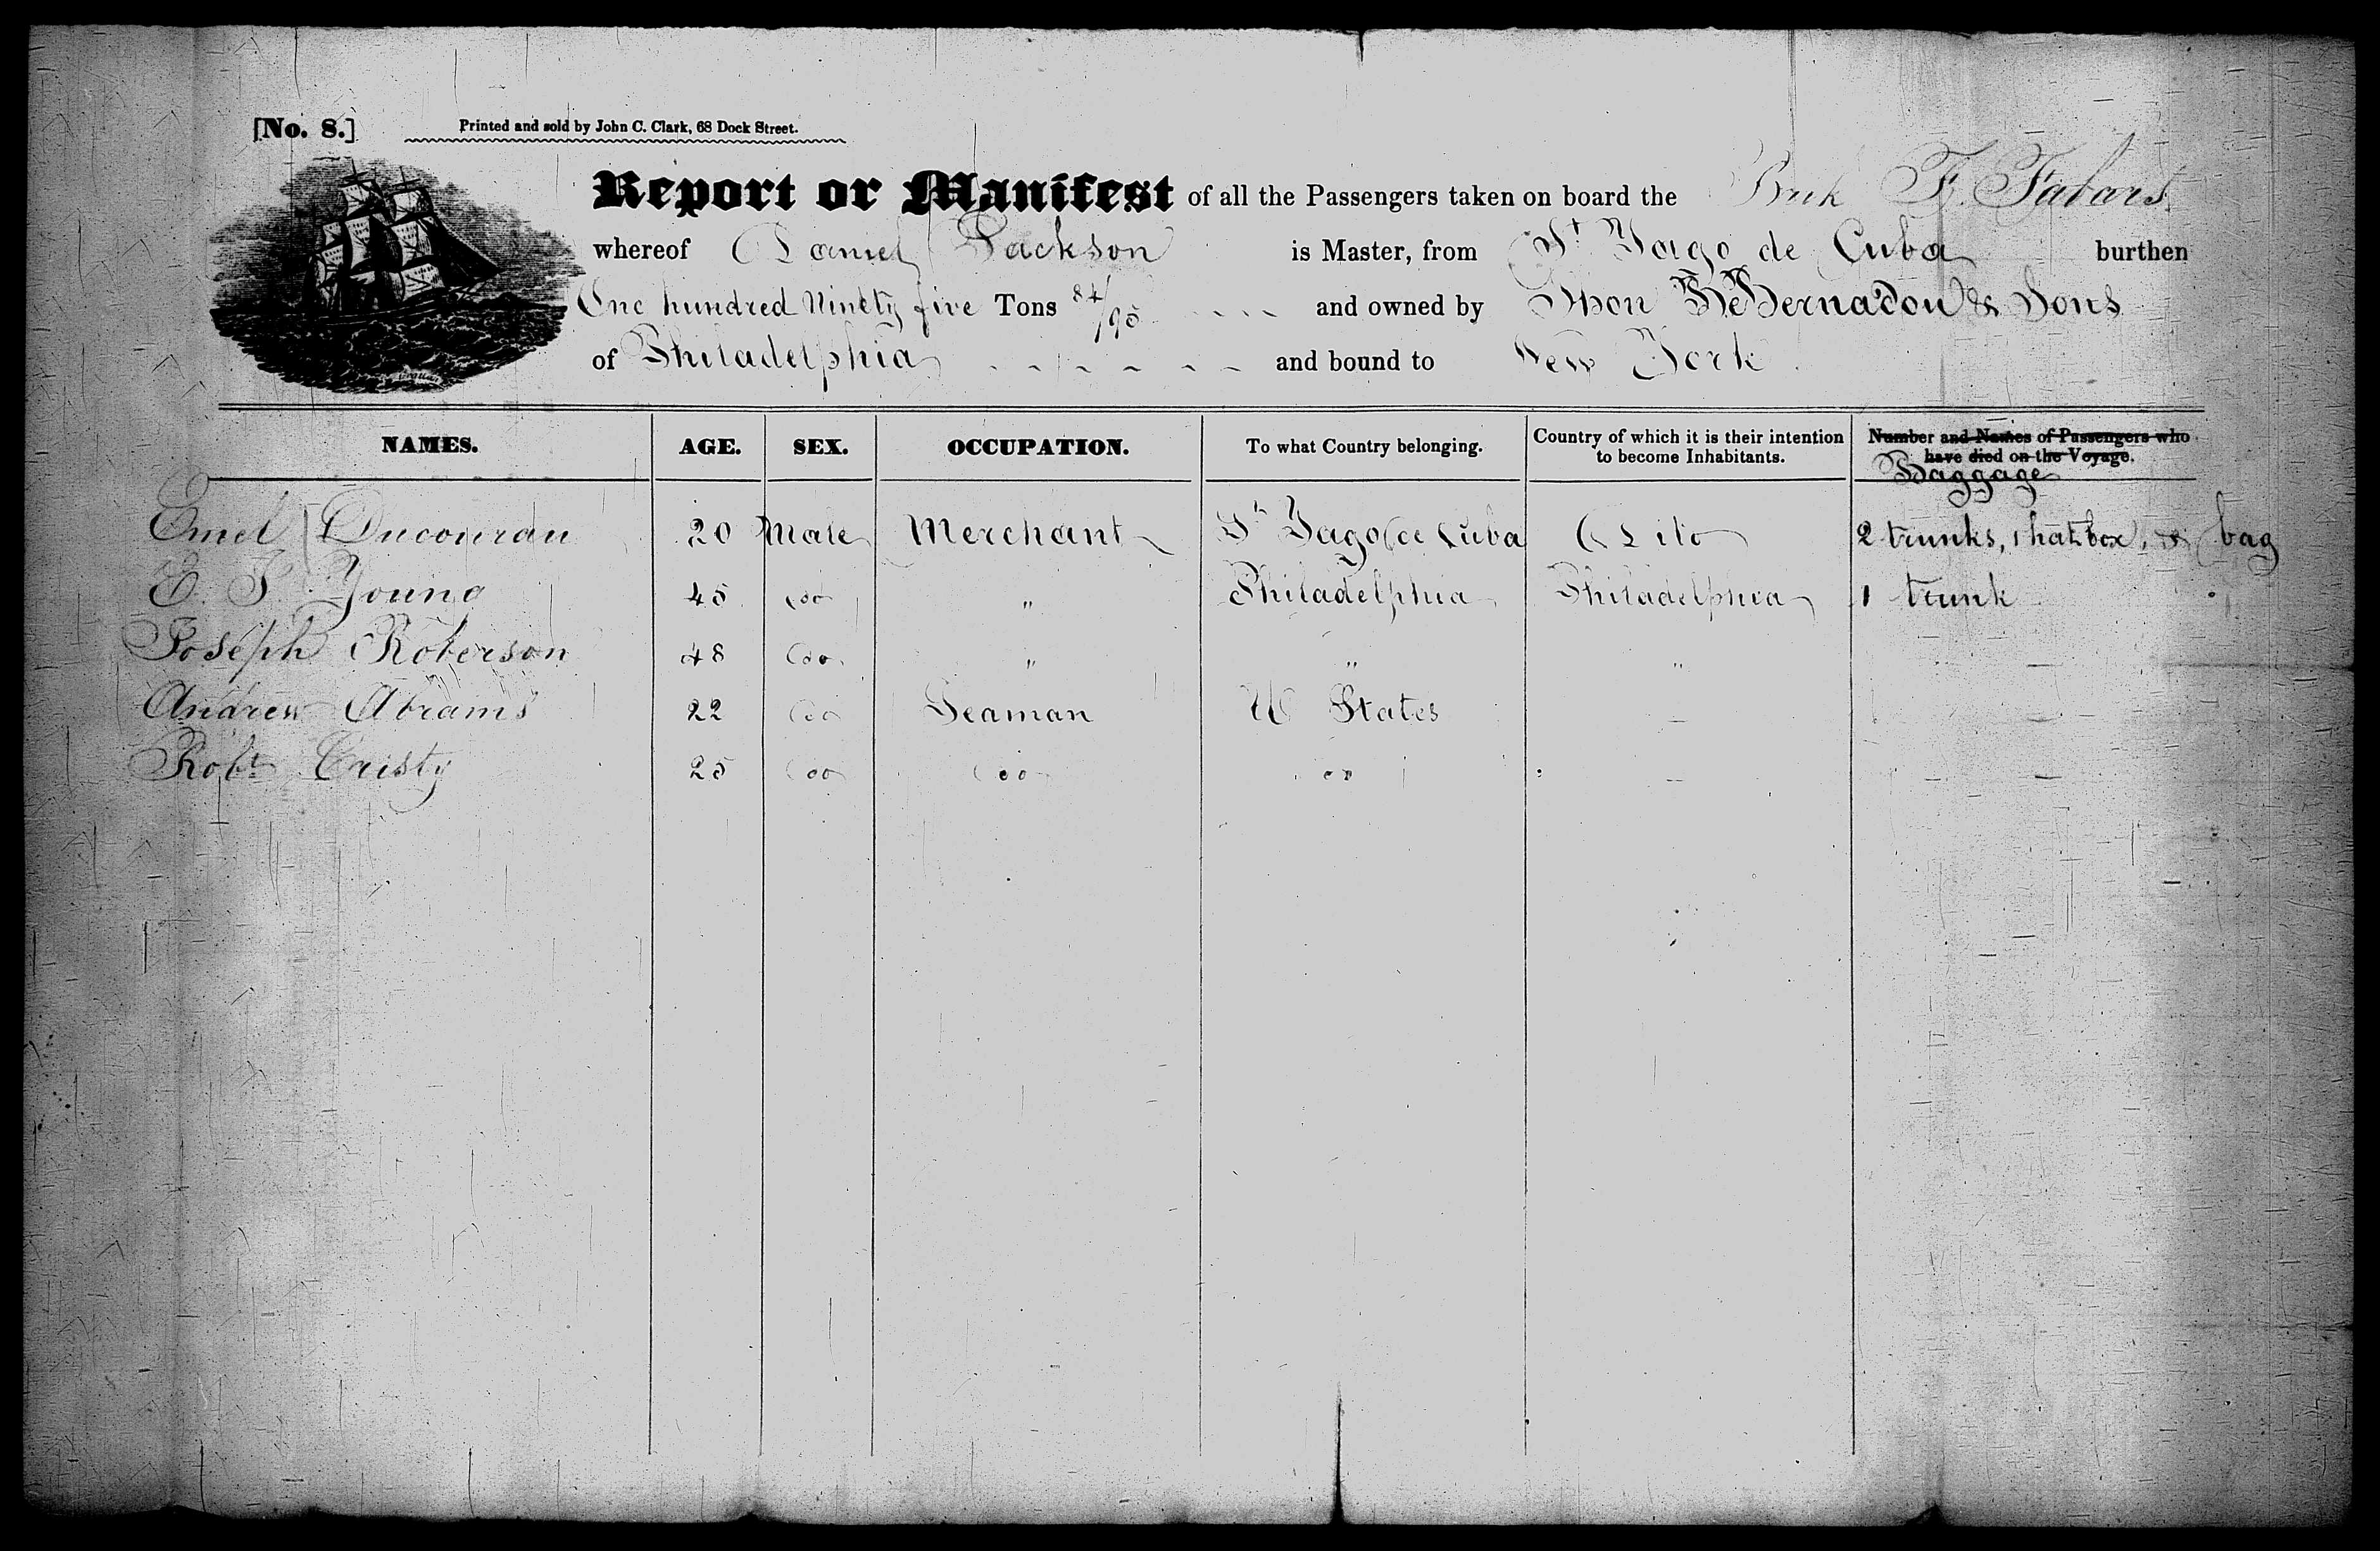 [No. 8.] Printed and sold by John C. Clark, 68 Dock Street.
Report or Manifest of all the Passengers taken on board the F. Fabars
whereof Daniel Jackson is Master, from St Jago de Cuba burthen
One hundred Ninety five Tons 84/95 and owned by DeBernadou & Sons
of Philadelphia and bound to New York.
NAMES. AGE. SEX. OCCUPATION. To what Country belonging. Country of which it is their intention to become Inhabitants. Number and Names of Passengers who have died on the Voyage.
Baggage
Emel Ducouran 20 Male Merchant St Jago de Cuba Ditto 2 trunks, 1 hat box, & bag
E. T. Young 45 do " Philadelphia Philadelphia 1 trunk
Joseph Roberson 48 do " " " —
Andrew Abrams 22 do Seaman U States — —
Robt Cristy 25 do do do — —